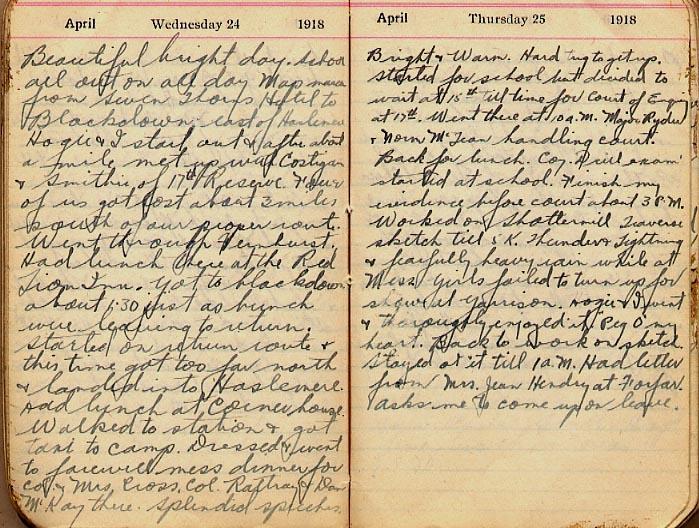 April Wednesday 24 1918
Beautiful bright day. School
all out on all day Map march
from Seven Thorns Hotel to
Blackdown east of Haslemere
Hogie & I start out & after about
a mile met up with Costigan
& Smithie of 17th Reserve. Four
of us got lost about 3 miles
south of our proper route.
Went through Fernhurst.
Had lunch there at the Red
Lion Inn. Got to blackdown
about 1:30 just as bunch
were leaving to return.
Started on return route &
this time got too far north
& landed into Haslemere.
Had lunch at Corner house.
Walked to station & got
taxi to camp. Dressed & went
to farewell mess dinner for
Col & Mrs. Cross. Col. Raftray & Dan
McKay there. Splendid speeches.
April Thursday 25 1918
Bright & Warm. Hard to get up.
Started for school but decided to
wait at 15th till time for Court of Enquiry
at 17th. Went there at 10 a.m. Major Ryder
& Norm McLean handling court.
Back for lunch. Coy. Drill exam
started at school. Finish my
evidence before court about 3 P.M.
Worked on Shottermill Traverse
sketch till 5 K. Thunder & Lightning
& fearfully heavy rain while at
Mess. Girls failed to turn up for
show at Garrison. Hogie & I went
& thoroughly enjoyed it Peg O' my
heart. Back to work on sketch.
Stayed at it till 1 a.m. Had letter
from Mrs. Jean Hendry at Forfar
asks me to come up on leave.